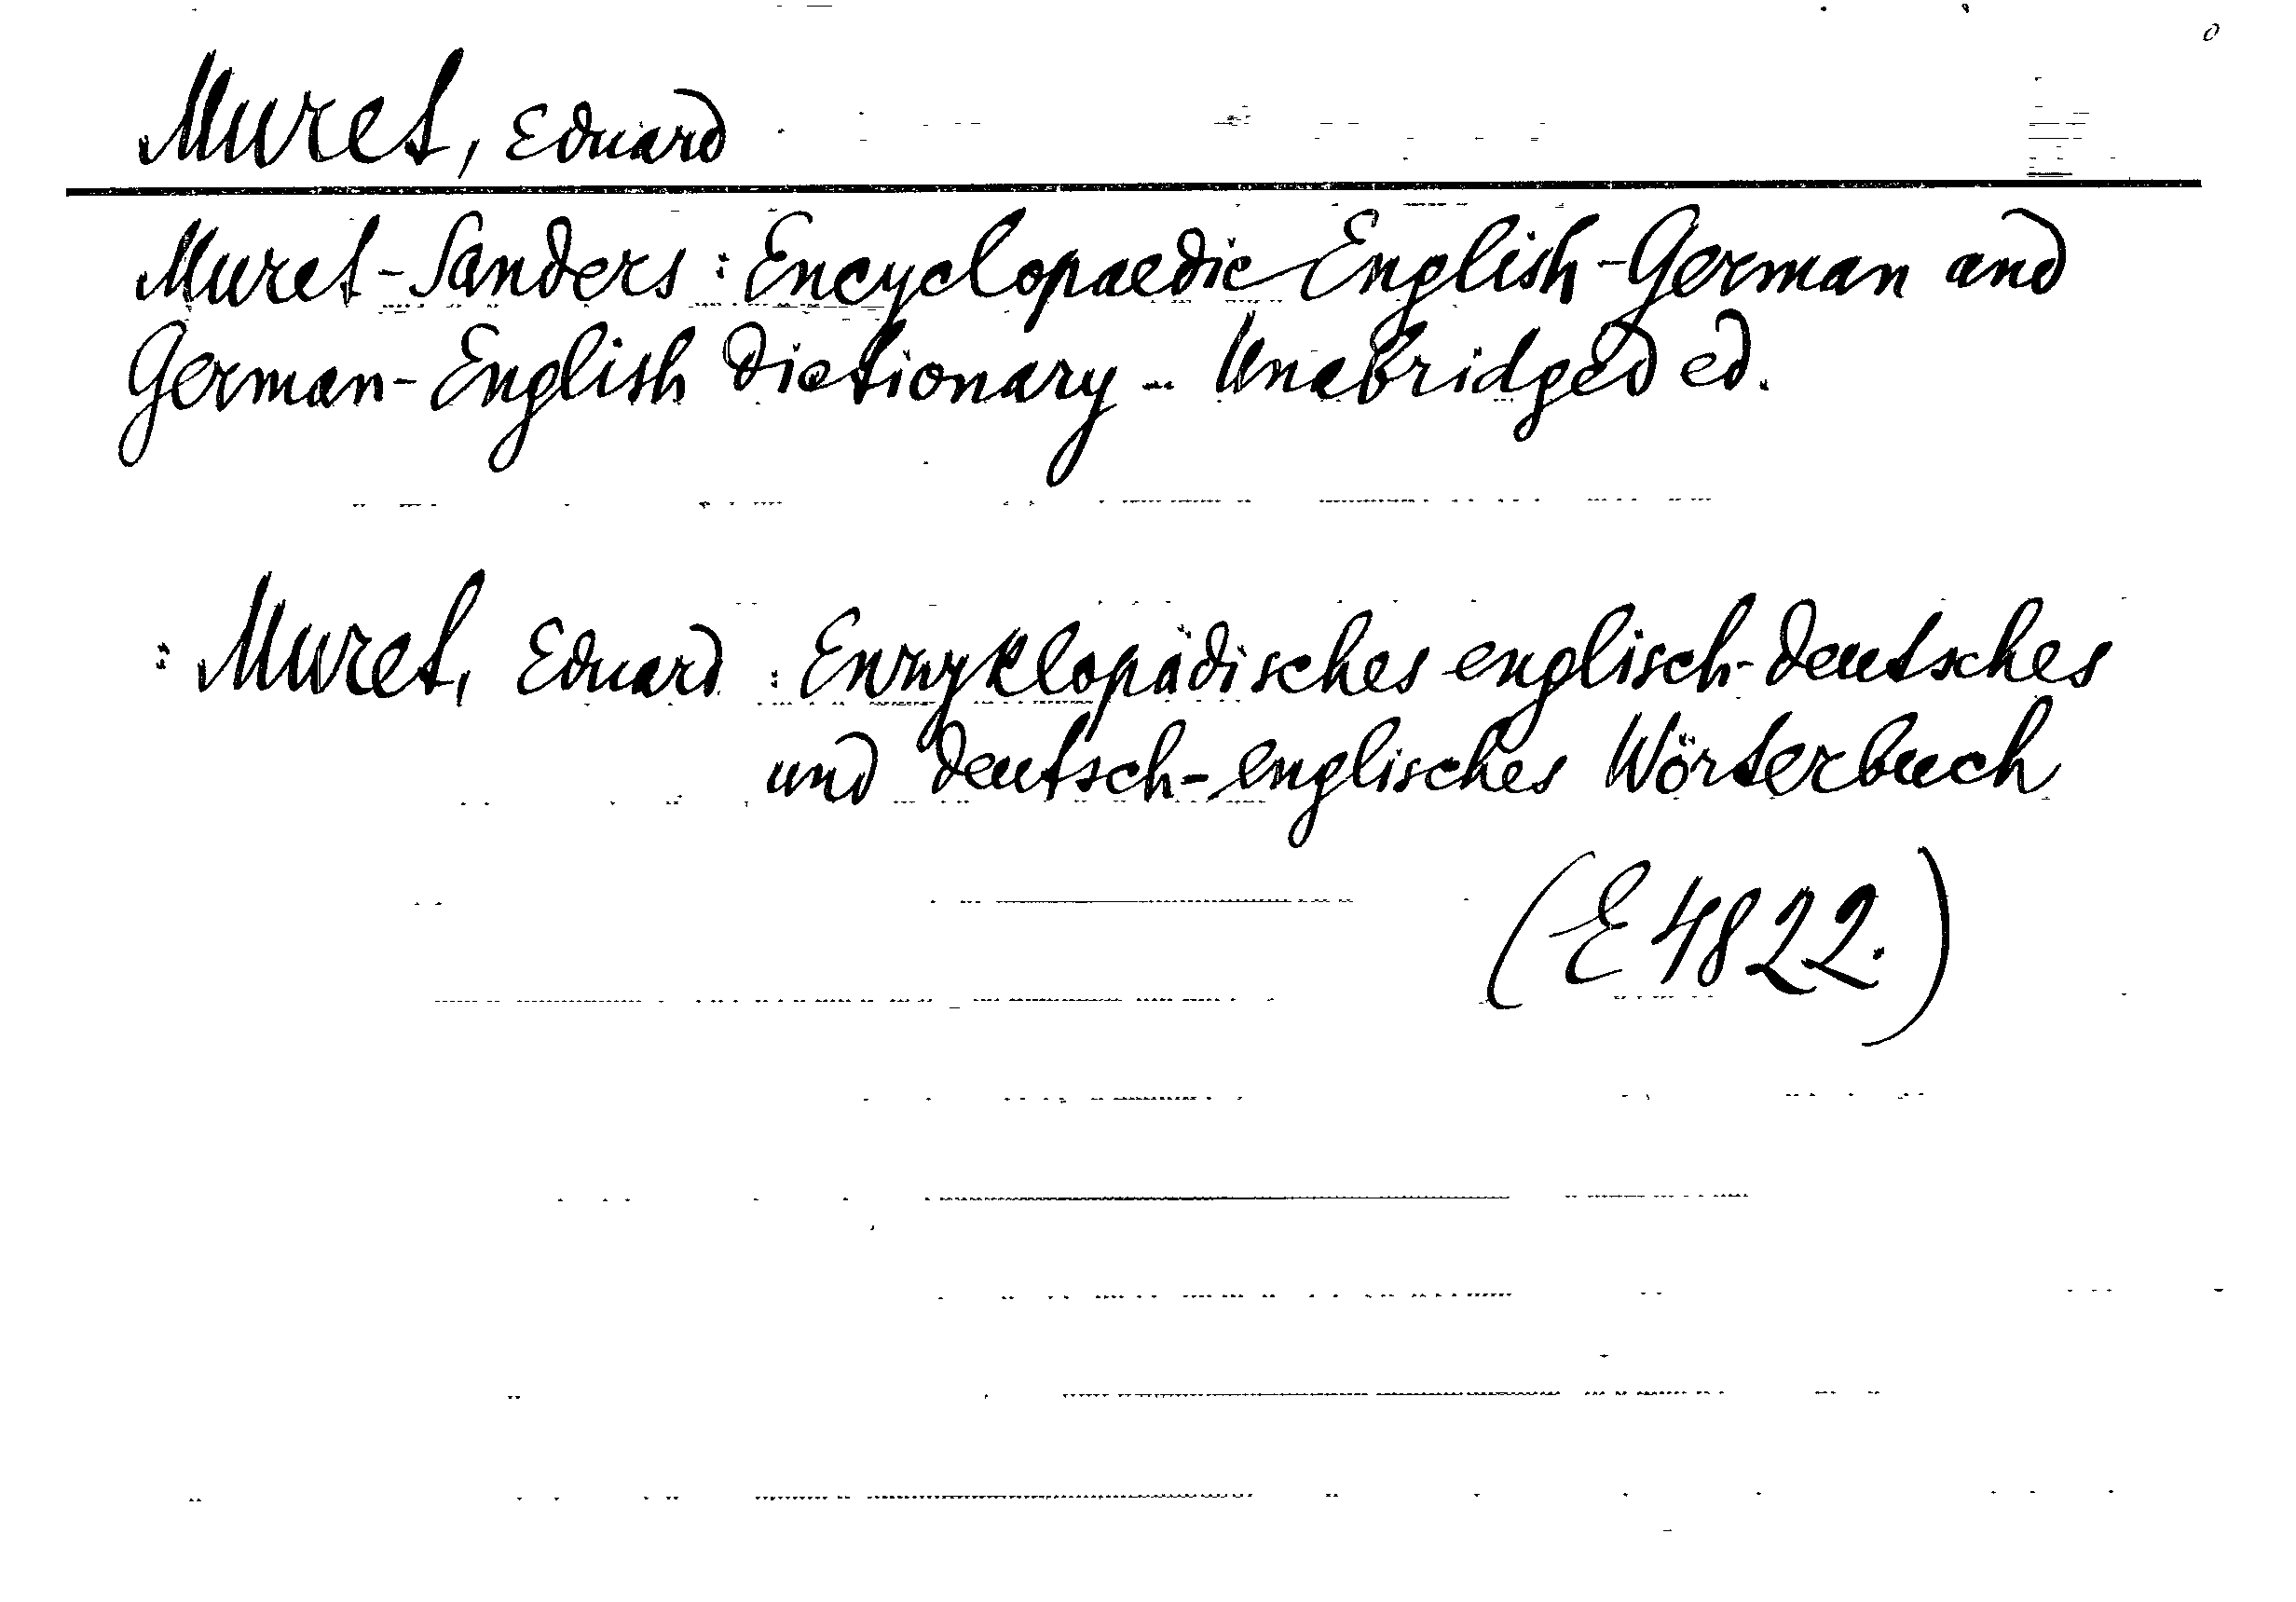 Muret, Eduard
Muret-Sanders: Encyclopaedic English-German and
German-English Dictionary - Unabridged ed.
: Muret, Eduard : Enzyklopädisches englisch-deutsches
und deutsch-englisches Wörterbuch
(E 4822.)